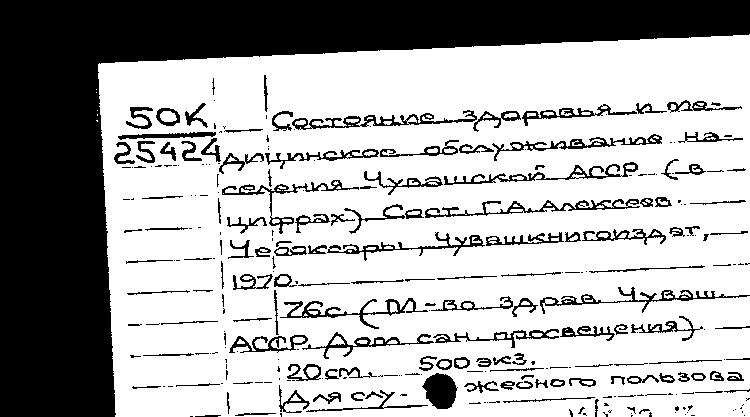 50К
25424
Состояние здоровья и ме-
дицинское обслуживание на-
селения Чувашской АССР (в
цифрах). Сост. Г.А. Алексеев.
Чебоксары, Чувашкнигоиздат,
1970.
76с. (М-во здрав. Чуваш.
АССР. Дом сан. просвещения).
20см. 500 экз.
Для слу- жебного пользова